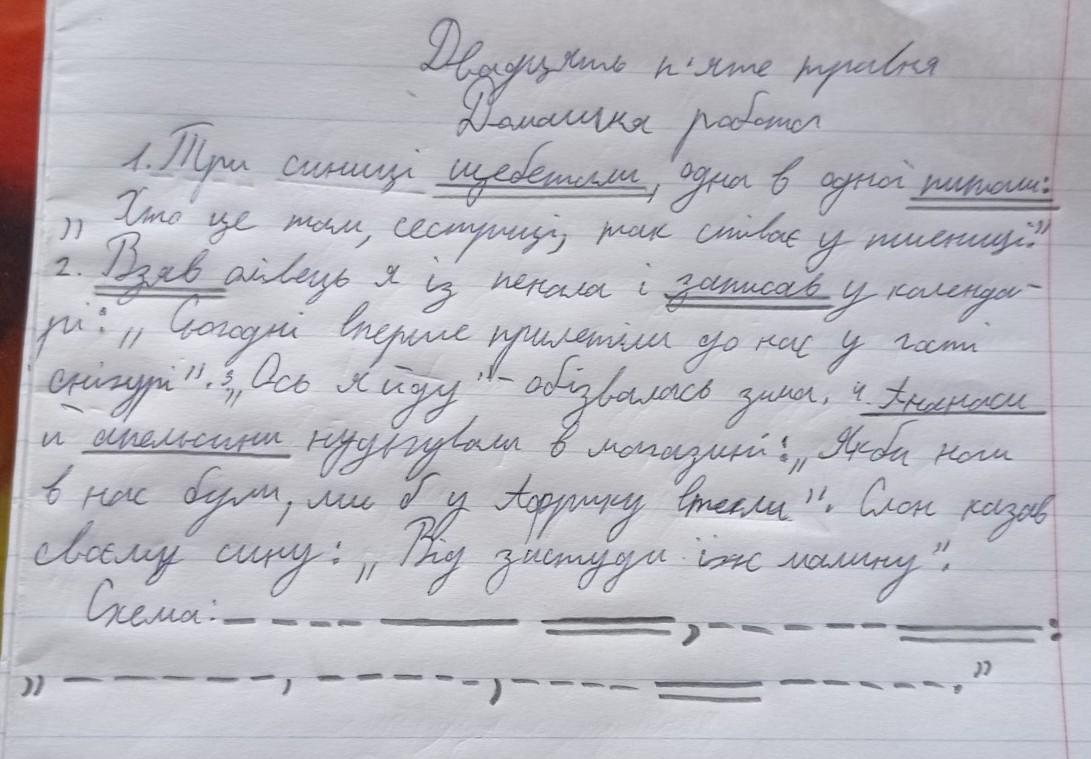 Двадцять п'яте травня
Домашня робота
1. Три синиці щебетали, одна в одної питали:
„Хто це там, сестриці, так співає у пшениці."
2. Взяв олівець я із пенала і записав у календа-
рі: „Сьогодні вперше прилетіли до нас у гості
снігурі". 3. „Ось я йду" - обізвалась зима. 4. Ананаси
й апельсини нудьгували в магазині: „Якби ноги
в нас були, ми б у Африку втекли". Слон казав
своєму сину: „Від застуди їж малину".
Схема: